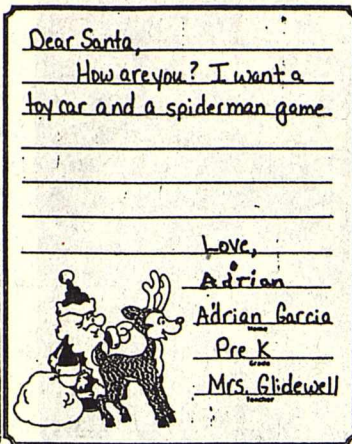 Dear Santa,
How are you? I want a
toy car and a spiderman game
Love,
Adrian
Adrian Garcia
Name
Pre K
Grade
Mrs. Glidewell
Teacher